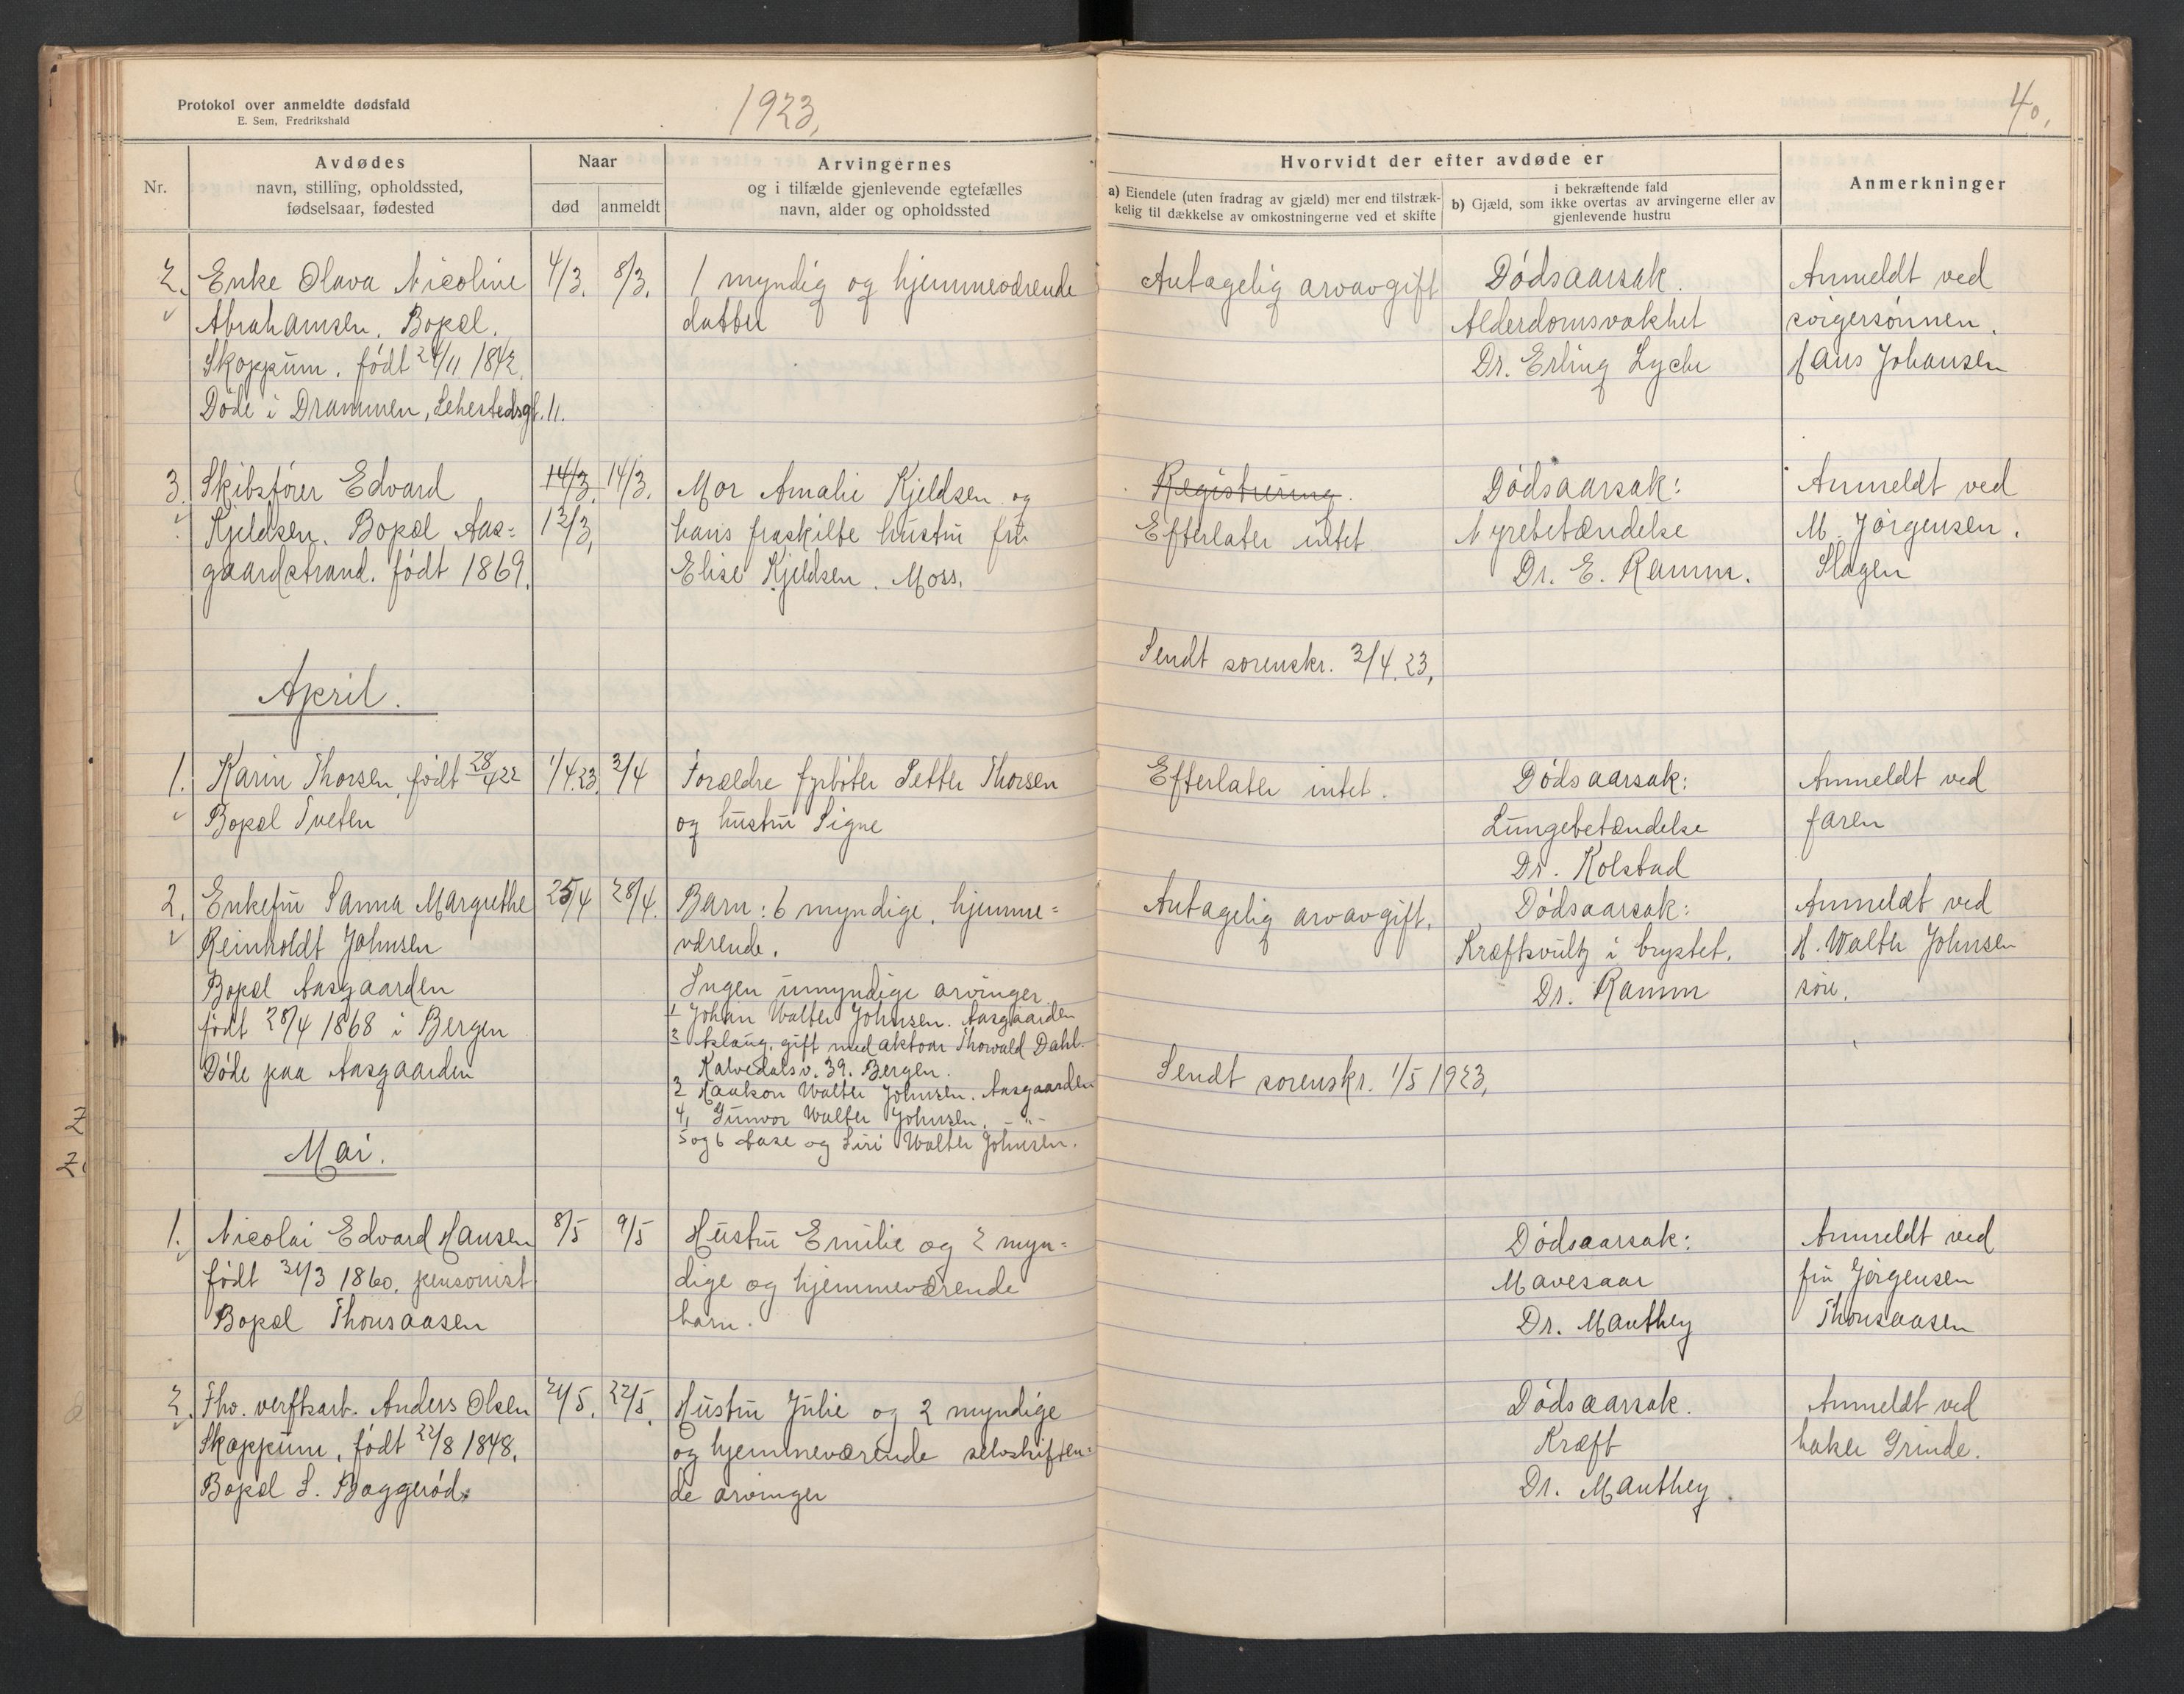 Protokol over anmeldte dødsfald
E. Sem, Fredrikshald
1923,
Nr.
Avdødes
navn, stilling, opholdssted,
fødselsaar, fødested
Naar
død
anmeldt
Arvingernes
og i tilfælde gjenlevende egtefælles
navn, alder og opholdssted
2. Enke Olava Nicoline 4/3. 8/3. 1 myndig og hjemmeværende
Abrahamsen. Bopæl. datter
Skoppum. født 24/11 1842.
Døde i Drammen, 11.
3. Skibsfører Edvard 14/3. 14/3. Mor Amalie Kjeldsen og
Kjeldsen. Bopæl Aas= 13/3, hans fraskilte hustru fru
gaardstrand. født 1869. Elise Kjeldsen. Moss.
April.
1. Karin Thorsen, født 28/4 22 1/4.23. 3/4 Forældre fyrbøter Petter Thorsen
Bopæl Tveten og hustru Signe
2. Enkefru Sanna Margrethe 25/4 28/4. Barn: 6 myndige, hjemme=
Reinholdt Johnsen værende.
Bopæl Aasgaarden Ingen umyndige arvinger.
født 28/4 1868 i Bergen 1 Johan Walter Johnsen. Aasgaarden
2 Aslaug, gift med aktuar Thorvald Dahl.
Døde paa Aasgaarden Kalvedalsv. 39. Bergen.
3 Haakon Walter Johnsen. Aasgaarden
4, Gunvor Walter Johnsen. -"-
5 og 6 Aase og Siri Walter Johnsen.
Mai.
1. Nicolai Edvard Hansen 8/5 9/5 Hustru Emilie og 2 myn=
født 31/3 1860, pensonist dige og hjemmeværende
Bopæl Thonsaasen barn.
2. Fhv. verftsarb. Anders Olsen 21/5. 22/5. Hustru Julie og 2 myndige
Skoppum, født 22/8 1848. og hjemmeværende selvskiften=
Bopæl S. Baggerød. de arvinger
40,
Hvorvidt der efter avdøde er
a) Eiendele (uten fradrag av gjæld) mer end tilstræk-
kelig til dækkelse av omkostningerne ved et skifte
i bekræftende fald
b) Gjæld, som ikke overtas av arvingerne eller av
gjenlevende hustru
Anmerkninger
Antagelig arvavgift Dødsaarsak. Anmeldt ved
Alderdomsvakhet svigersønnen.
Dr. Erling Lyche Hans Johansen
Registrering. Dødsaarsak: Anmeldt ved
Efterlater intet Nyrebetændelse M. Jørgensen.
Dr. E. Ramm. Slagen
Sendt sorenskr. 3/4. 23,
Efterlater intet. Dødsaarsak: Anmeldt ved
Lungebetændelse faren
Dr. Kolstad
Antagelig arvavgift. Dødsaarsak: Anmeldt ved
Kræftsvulst i brystet. H. Walter Johnsen
Dr. Ramm søn.
Sendt sorenskr. 1/5 1923,
Dødsaarsak: Anmeldt ved
Mavesaar fru Jørgensen
Dr. Manthey Thonsaasen
Dødsaarsak. Anmeldt ved
Kræft baker Grinde.
Dr. Manthey